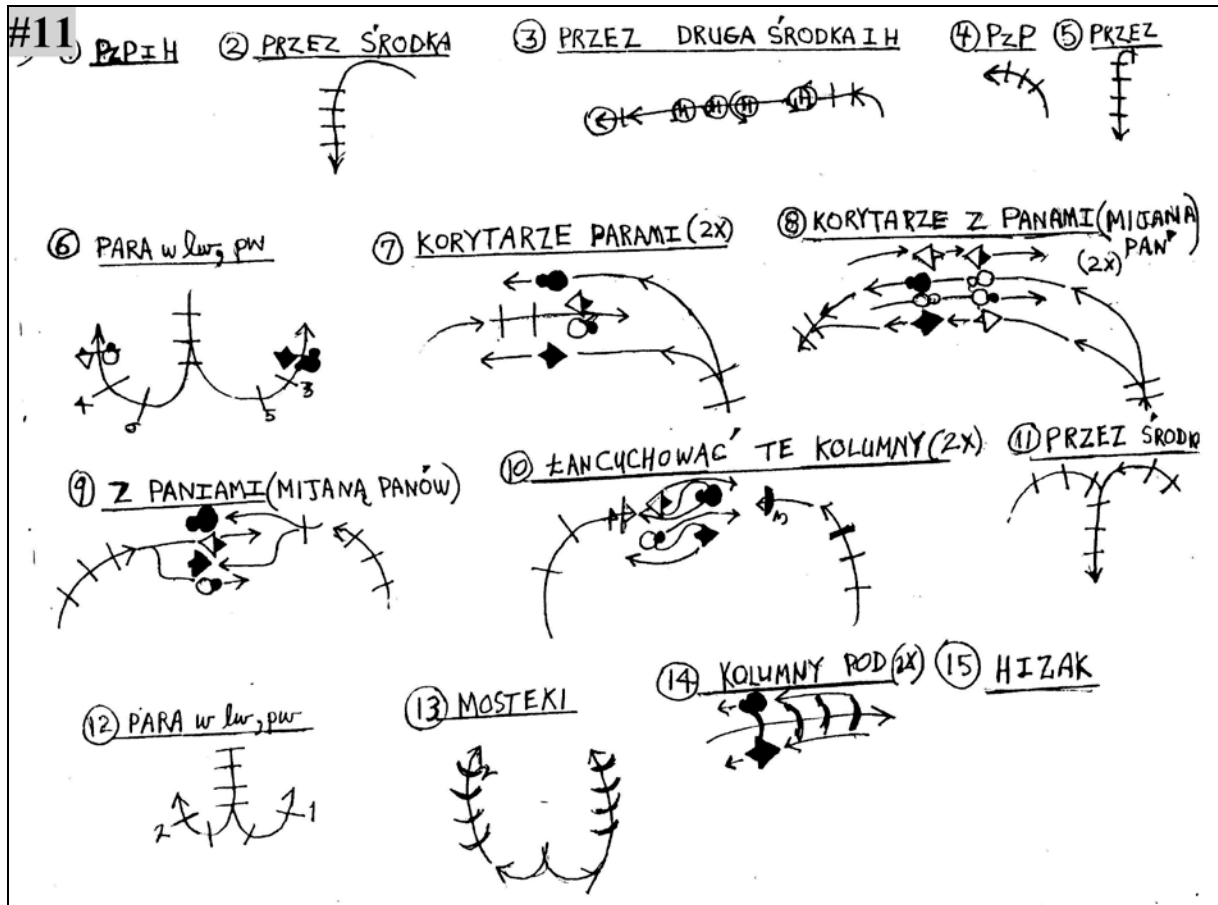 #11
① PzP I H
② PRZEZ ŚRODKA
③ PRZEZ DRUGA ŚRODKA I H
④ PzP
⑤ PRZEZ
H H H H
⑥ PARA w lw, pw
⑦ KORYTARZE PARAMI (2X)
⑧ KORYTARZE Z PANAMI (MIJANA
PAN
(2X)
4 6 5 3
⑨ Z PANIAMI (MIJANĄ PANÓW)
⑩ ŁANCUCHOWAĆ TE KOLUMNY (2X)
⑪ PRZEZ ŚRODK
⑫ PARA w lw, pw
2 1
⑬ MOSTEKI
2
⑭ KOLUMNY POD (2X)
⑮ HIZAK